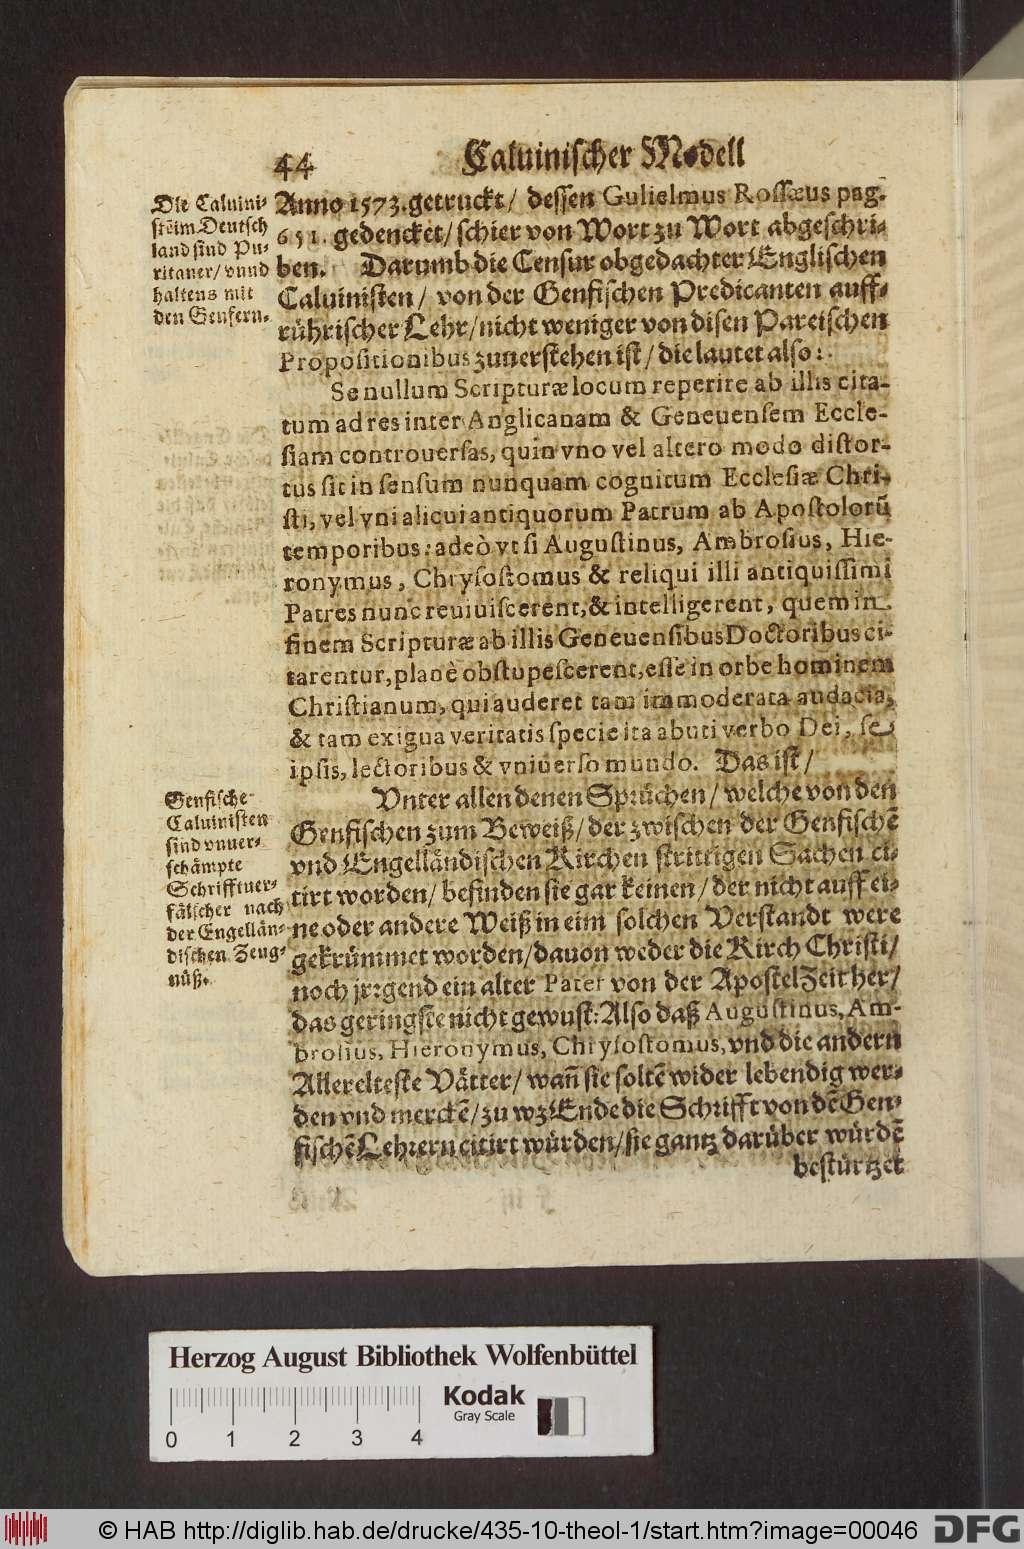 44 Caluinischer Modell
Die Caluini-
stē im Deutsch
land sind Pu-
ritaner/ vnnd
haltens mit
den Genfern.
Anno 1573. getruckt/ dessen Gulielmus Rossæus pag.
651. gedencket/ schier von Wort zu Wort abgeschri-
ben. Darumb die Censur obgedachter Englischen
Caluinisten/ von der Genfischen Predicanten auff-
rührischer Lehr/ nicht weniger von disen Pareischen
Propositionibus zuuerstehen ist/ die lautet also:
Se nullum Scripturæ locum reperire ab illis cita-
tum ad res inter Anglicanam & Geneuensem Eccle-
siam controuersas, quin vno vel altero modo distor-
tus sit in sensum nunquam cognitum Ecclesiæ Chri-
sti, vel vni alicui antiquorum Patrum ab Apostolorū
temporibus: adeò vt si Augustinus, Ambrosius, Hie-
ronymus, Chrysostomus & reliqui illi antiquissimi
Patres nunc reuiuiscerent, & intelligerent, quem in
finem Scripturæ ab illis Geneuensibus Doctoribus ci-
tarentur, planè obstupescerent, esse in orbe hominem
Christianum, qui auderet tam immoderata audacia,
& tam exigua veritatis specie ita abuti verbo Dei, se
ipsis, lectoribus & vniuerso mundo. Das ist/
Genfische
Caluinisten
sind vnuer-
schämpte
Schrifftuer-
fälscher nach
der Engellän-
dischen Zeug-
nüß.
Vnter allen denen Sprüchen/ welche von den
Genfischen zum Beweiß/ der zwischen der Genfischē
vnd Engelländischen Kirchen strittigen Sachen ci-
tirt worden/ befinden sie gar keinen/ der nicht auff ei-
ne oder andere Weiß in eim solchen Verstandt were
gekrümmet worden/ dauon weder die Kirch Christi/
noch jrrgend ein alter Pater von der Apostel Zeit her/
das geringste nicht gewust: Also daß Augustinus, Am-
brosius, Hieronymus, Chrysostomus, vnd die andern
Allerelteste Vätter/ wañ sie soltē wider lebendig wer-
den vnd merckē/ zu wz Ende die Schrifft von dē Gen-
fischē Lehrern citirt würden/ sie gantz darüber würdē
bestürtzet
Herzog August Bibliothek Wolfenbüttel
Kodak
Gray Scale
0 1 2 3 4
© HAB http://diglib.hab.de/drucke/435-10-theol-1/start.htm?image=00046
DFG